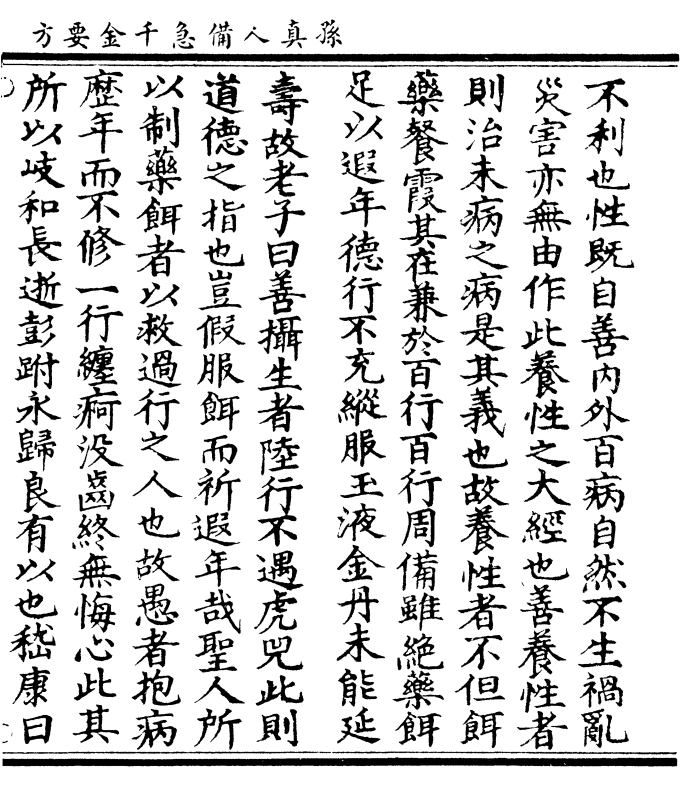 孫真人備急千金要方
不利也性既自善内外百病自然不生禍亂
災害亦無由作此養性之大經也善養性者
則治未病之病是其義也故養性者不但餌
藥餐霞其在兼於百行百行周備雖絶藥餌
足以遐年德行不充縱服玉液金丹未能延
壽故老子曰善攝生者陸行不遇虎兕此則
道德之指也豈假服餌而祈遐年哉聖人所
以制藥餌者以救過行之人也故愚者抱病
歷年而不修一行纏痾没齒終無悔心此其
所以岐和長逝彭跗永歸良有以也嵇康曰